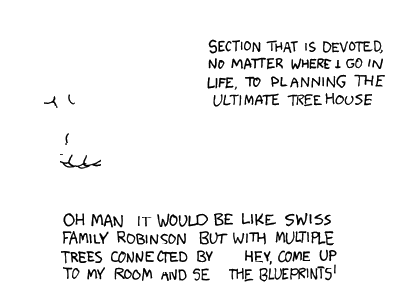 SECTION THAT IS DEVOTED,
NO MATTER WHERE I GO IN
LIFE, TO PLANNING THE
ULTIMATE TREE HOUSE
OH MAN IT WOULD BE LIKE SWISS
FAMILY ROBINSON BUT WITH MULTIPLE
TREES CONNECTED BY HEY, COME UP
TO MY ROOM AND SE THE BLUEPRINTS!